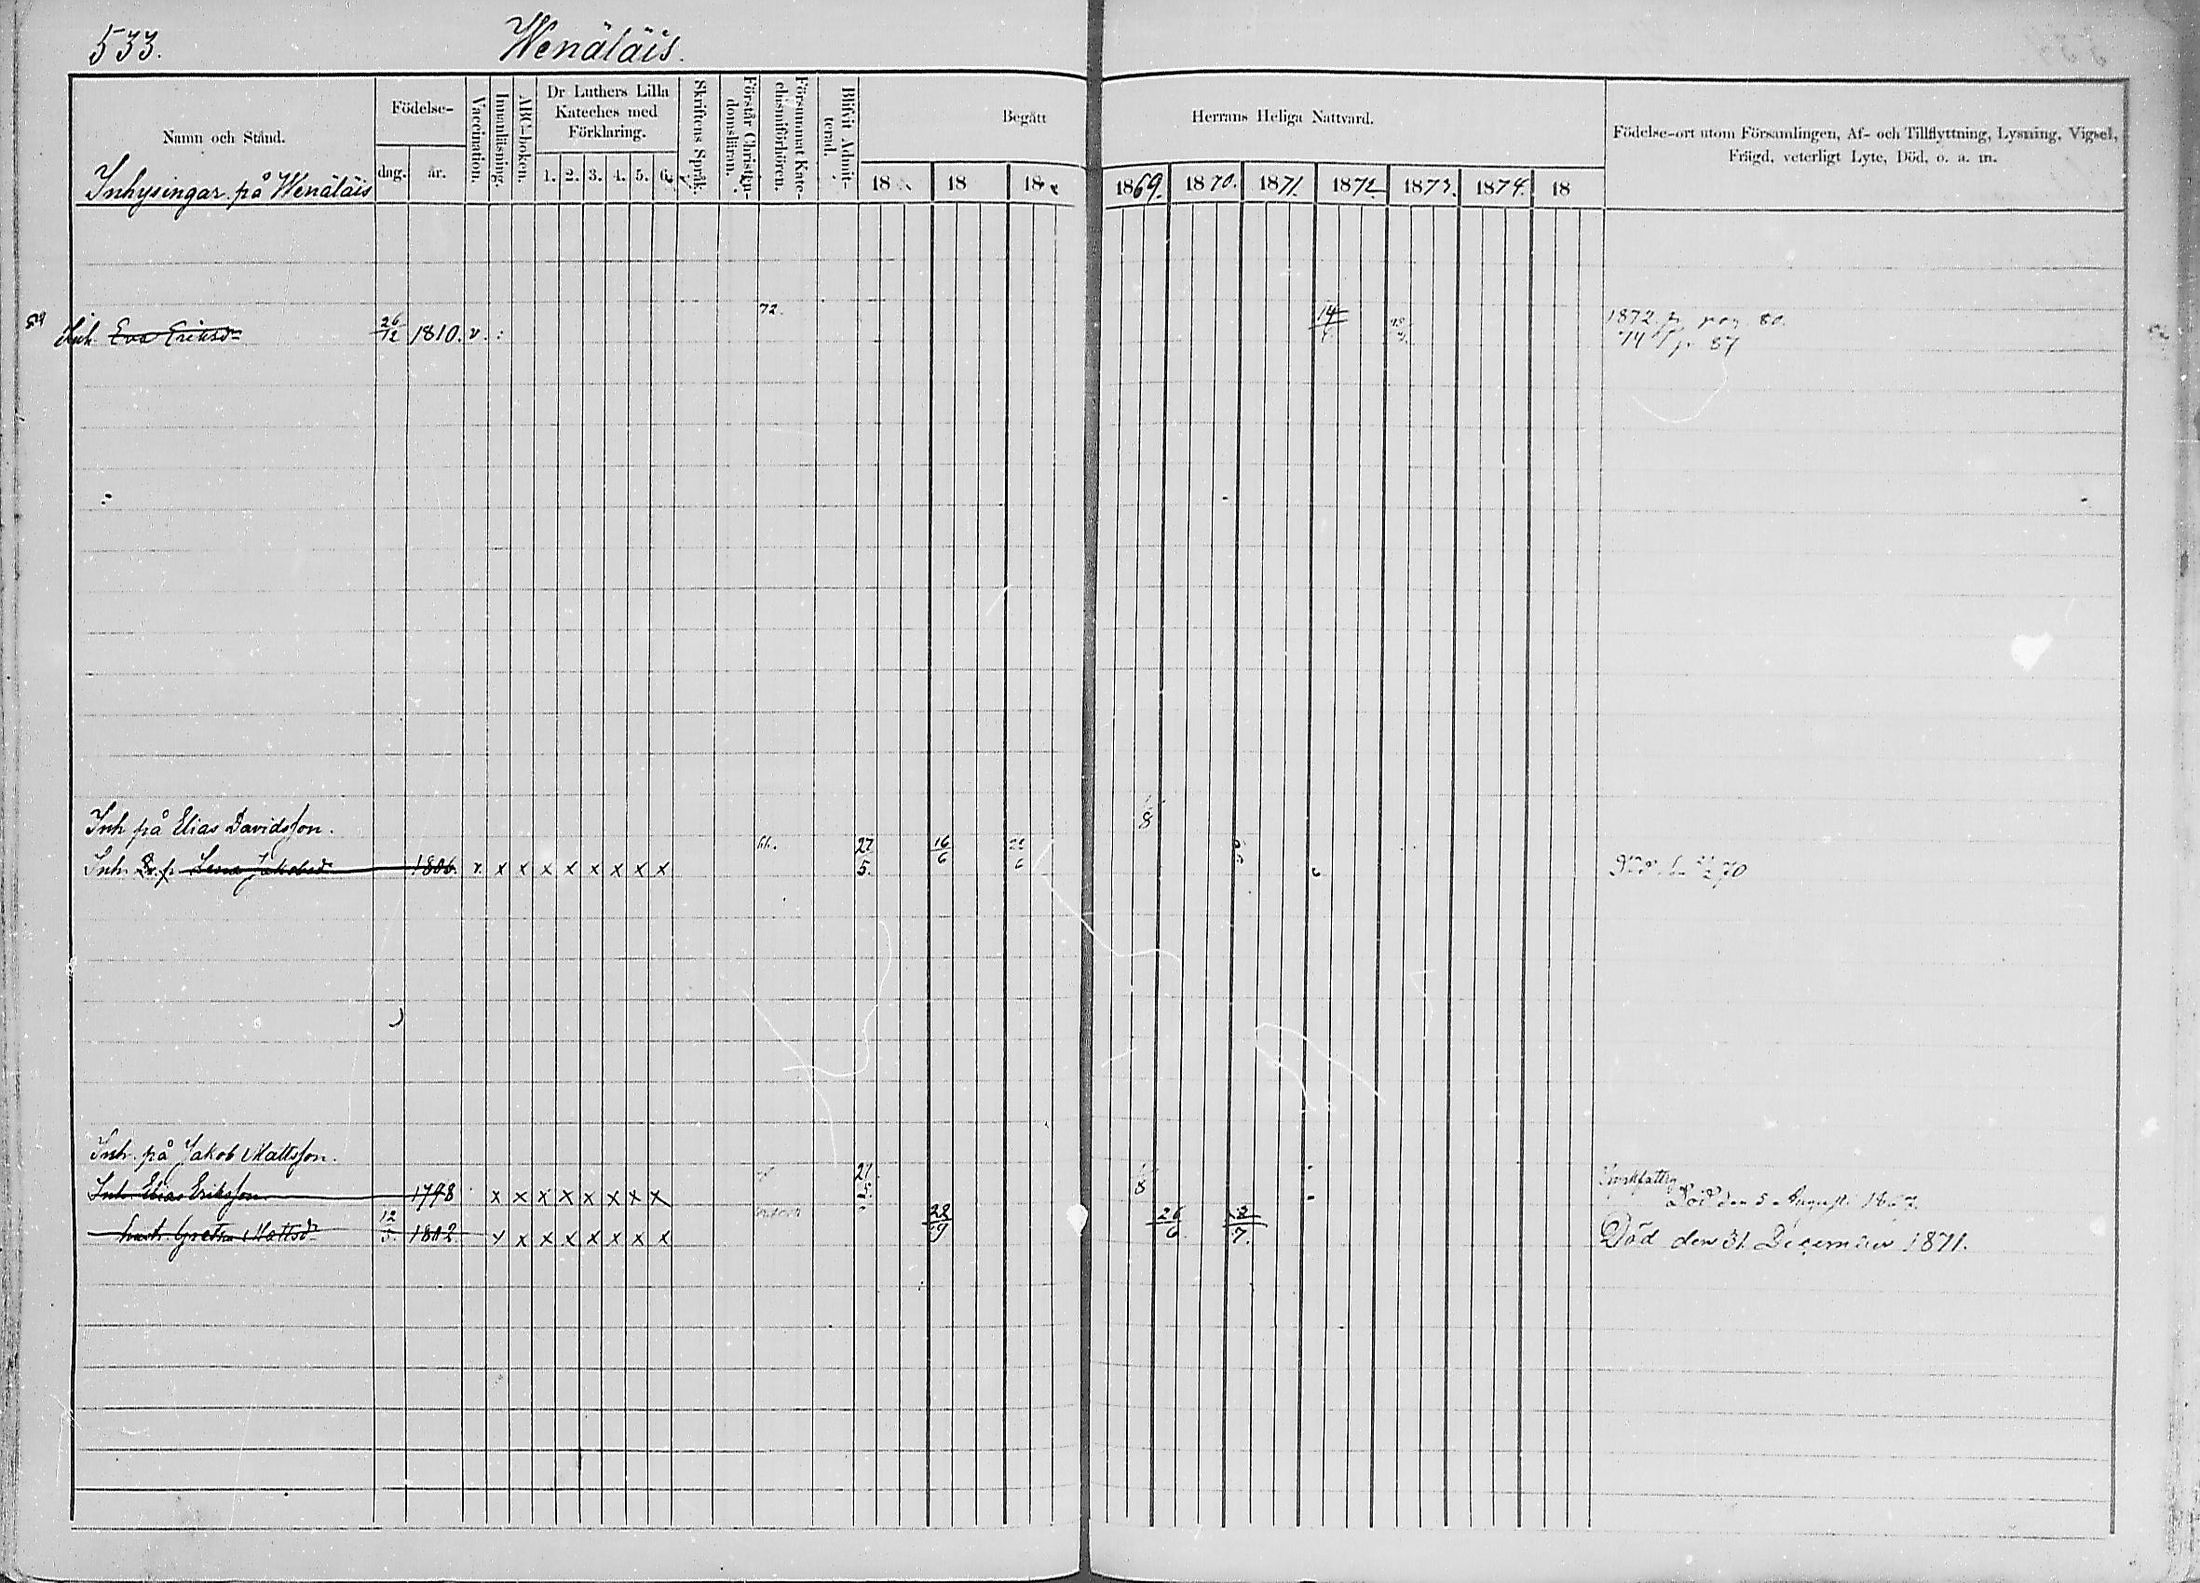 533.
Wenäläis.
Namn och Stånd.
Inhysingar på Wenäläis
Födelse-
dag. år.
Vaccination.
Innanläsning.
ABC-boken.
Dr Luthers Lilla
Kateches med
Förklaring.
1. 2. 3. 4. 5. 6.
Skriftens Språk.
Förstår Christen-
domsläran.
Försummat Kate-
chismiförhören.
Blifvit Admit-
terad.
Begått Herrans Heliga Nattvard.
18 18 18 1869. 1870. 1871. 1872. 1873. 1874. 18
Födelse-ort utom Församlingen, Af- och Tillflyttning, Lysning, Vigsel,
Frägd, veterligt Lyte, Död, o. a. m.
Inh. Eva Eriksd 26/12 1810. v. 72. 14 1872 pag 80.
74 p. 87
Inh på Elias Davidsson.
Inh. Lena Jakobsd 1806. v. x x x x x x x x 66. 27/5. 16/6 70
Inh. på Jakob Mattsson.
Inh. Elias Eriksson 1798 x x x x x x x x 27/5. Död den 5 Augusti
hust. Gretha Mattsd 12/3 1802 x x x x x x x x 22/9 26/6 7. Död den 31 December 1871.